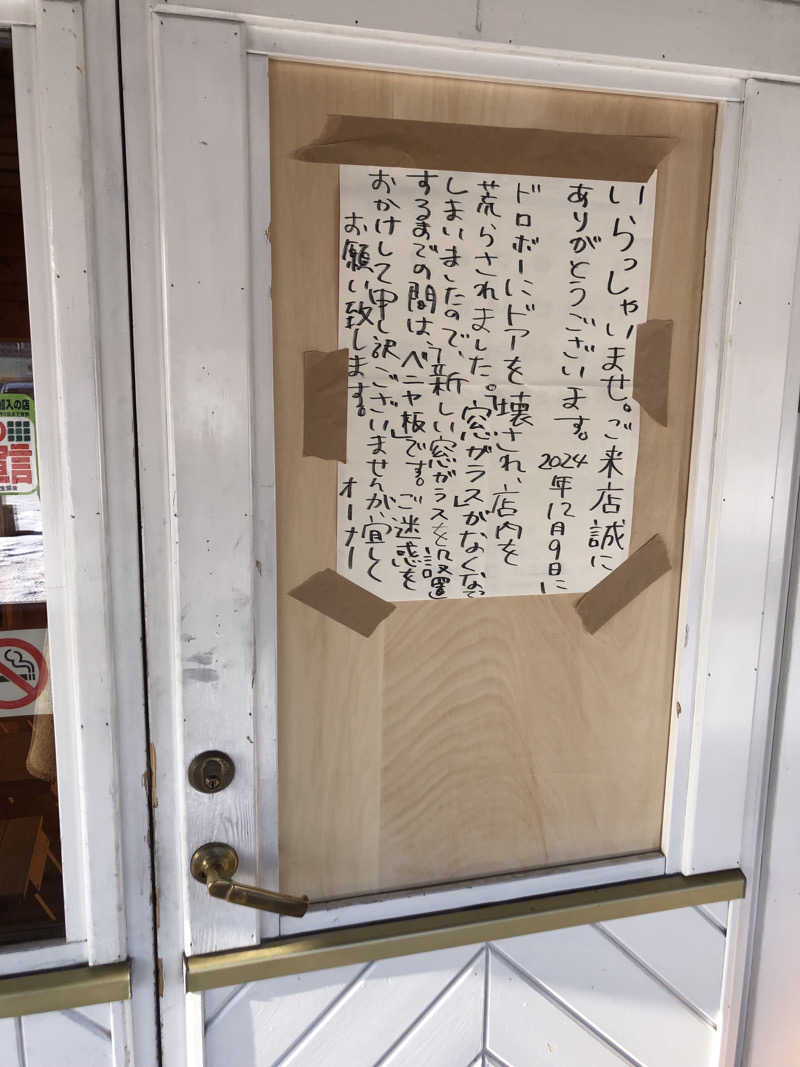 いらっしゃいませ。ご来店誠に
ありがとうございます。
2024年12月9日に
ドロボーにドアを壊され、店内を
荒らされました。「窓ガラス」がなくなって
しまいましたので、新しい窓ガラスを設置
するまでの間は、「ベニヤ板」です。ご迷惑を
おかけして申し訳ございませんが、宜しく
お願い致します。
オーナー
加入の店